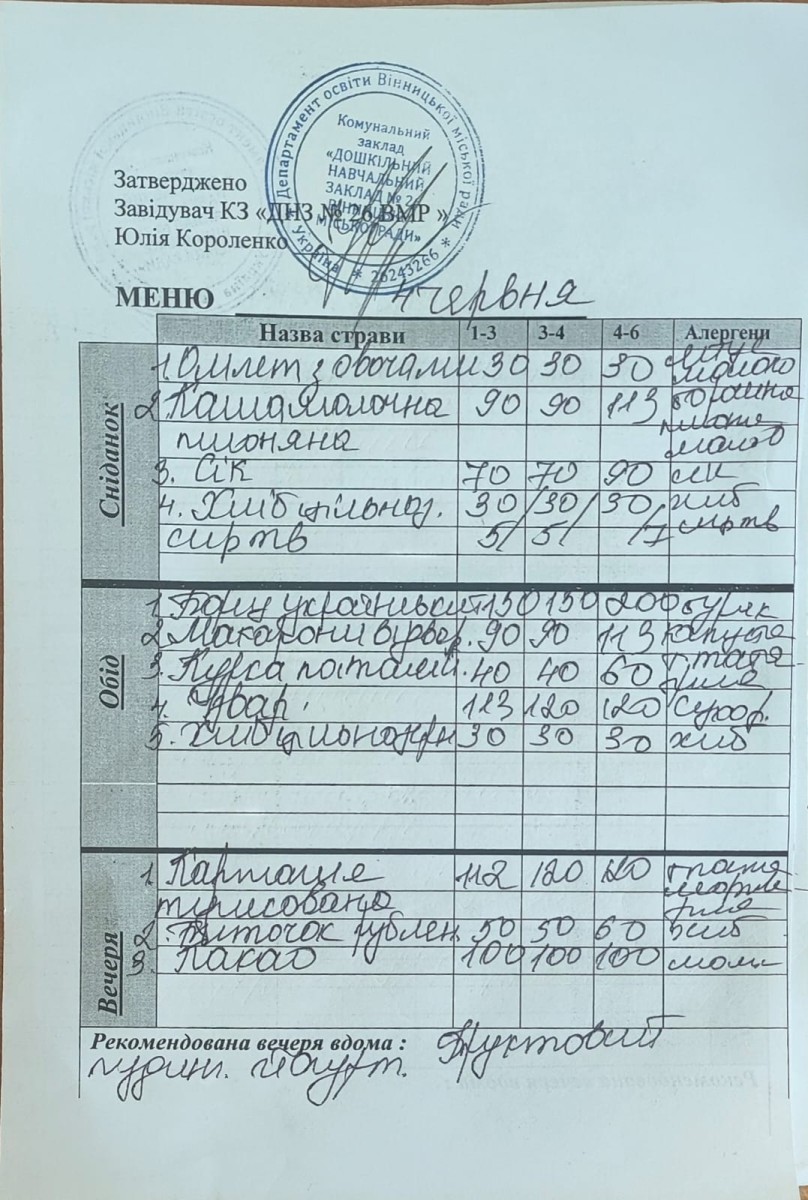 Департамент освіти Вінницької міської ради
Україна * 26243266 *
Комунальний
заклад
«ДОШКІЛЬНИЙ
НАВЧАЛЬНИЙ
ЗАКЛАД № 26
МІСЬКОЇ РАДИ»
Затверджено
Завідувач КЗ «ДНЗ № 26 ВМР »
Юлія Короленко
МЕНЮ 4 червня
Назва страви 1-3 3-4 4-6 Алергени
Сніданок
1. Омлет з овочами 30 30 30 молоко
2 Каша молочна 90 90 113
пшоняна
3. Сік 70 70 90 сік
4. Хліб цільноз. 30/ 30/ 30 хліб
сир тв 5/ 5/ /7 сир тв
Обід
1. Борщ український 150 150 200 буряк
2. Макарони відвар. 90 90 113 капуста
3. Курка 40 40 60
4. Узвар 113 120 120 сухоф.
5. Хліб цільнозерн 30 30 30 хліб
Вечеря
1 Картопля 112 120 120
2. Биточок рублен. 50 50 60 хліб
3. Какао 100 100 100 молок
Рекомендована вечеря вдома : Фруктовий
йогурт.